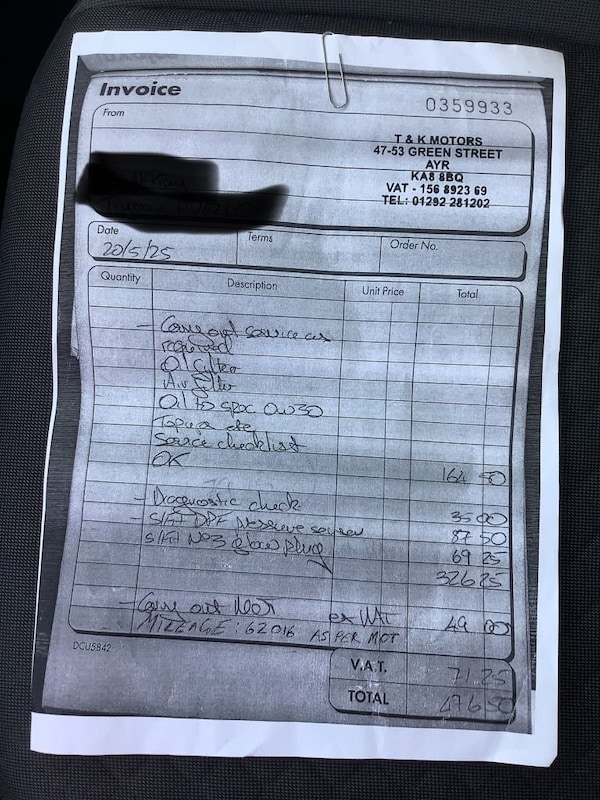 Invoice
0359933
From
T & K MOTORS
47-53 GREEN STREET
AYR
KA8 8BQ
VAT - 156 8923 69
TEL: 01292 281202
Date
20/5/25
Terms
Order No.
Quantity Description Unit Price Total
- Carry out service as
required
Oil filter
Air filter
Oil to spec 0w30
Top up etc
Service checklist
OK 164 50
- Diagnostic check 35 00
- S/Fit DPF pressure sensor 87 50
S/Fit No3 glow plug 69 25
356 25
- Carry out MOT ex VAT 49 00
MILEAGE: 62016 AS PER MOT
DCU5842
V.A.T. 71.25
TOTAL 476 50